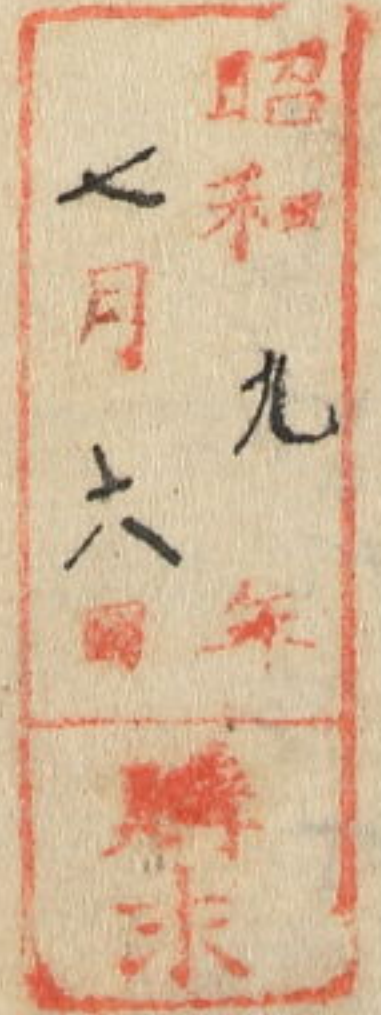 昭和九年
七月六日
購求